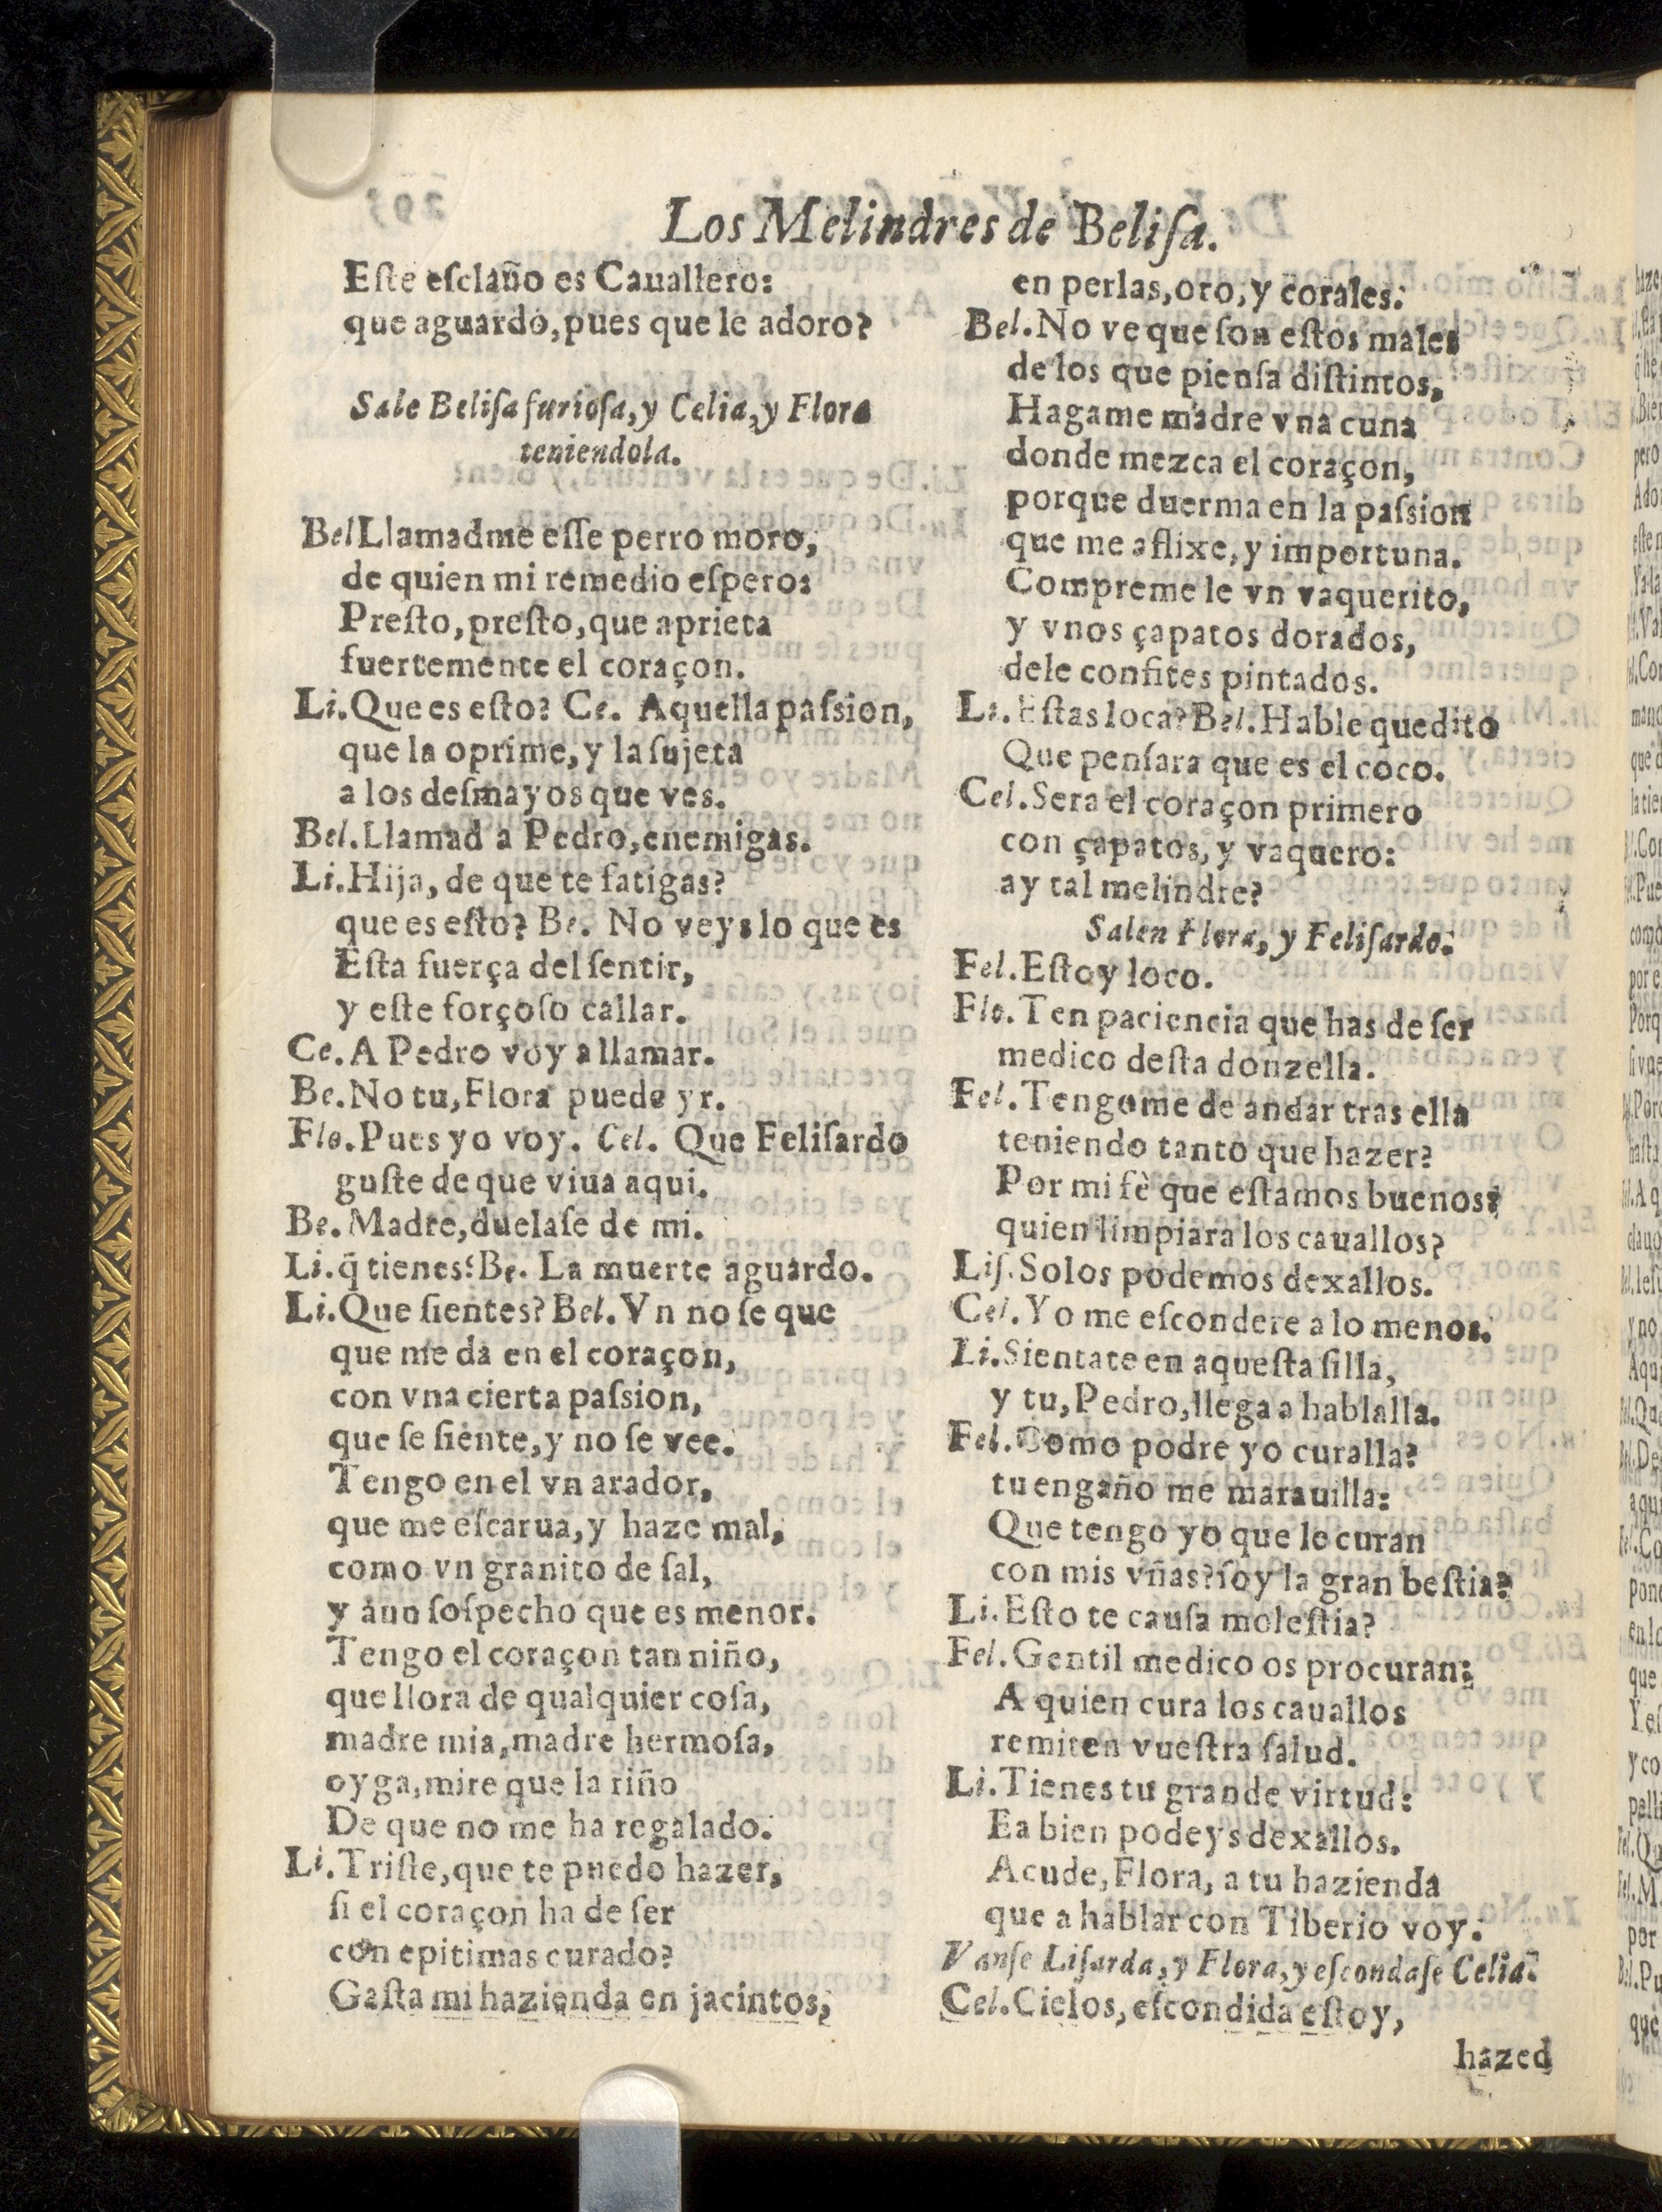 Los Melindres de Beliſa.
Eſte eſclaũo es Cauallero:
que aguardo, pues que le adoro?
Sale Beliſa furioſa, y Celia, y Flora
teniendola.
Bel Llamadme eſſe perro moro,
de quien mi remedio eſpero:
Preſto, preſto, que aprieta
fuertemente el coraçon.
Li. Que es eſto? Ce. Aquella paſsion,
que la oprime, y la ſujeta
a los deſmayos que ves.
Bel. Llamad a Pedro, enemigas.
Li. Hija, de que te fatigas?
que es eſto? Be. No veys lo que es
Eſta fuerça del ſentir,
y eſte forçoſo callar.
Ce. A Pedro voy a llamar.
Be. No tu, Flora puede yr.
Flo. Pues yo voy. Cel. Que Feliſardo
guſte de que viua aqui.
Be. Madre, duelaſe de mi.
Li. q̃ tienes? Be. La muerte aguardo.
Li. Que ſientes? Bel. Vn no ſe que
que me da en el coraçon,
con vna cierta paſsion,
que ſe ſiente, y no ſe vee.
Tengo en el vn arador,
que me eſcarua, y haze mal,
como vn granito de ſal,
y aun ſoſpecho que es menor.
Tengo el coraçon tan niño,
que llora de qualquier coſa,
madre mia, madre hermoſa,
oyga, mire que la riño
De que no me ha regalado.
Li. Triſte, que te puedo hazer,
ſi el coraçon ha de ſer
con epitimas curado?
Gaſta mi hazienda en jacintos,
en perlas, oro, y corales.
Bel. No ve que ſon eſtos males
de los que pienſa diſtintos,
Hagame madre vna cuna
donde mezca el coraçon,
porque duerma en la paſsion
que me aflixe, y importuna.
Compreme le vn vaquerito,
y vnos çapatos dorados,
dele confites pintados.
Li. Eſtas loca? Bel. Hable quedito
Que penſara que es el coco.
Cel. Sera el coraçon primero
con çapatos, y vaquero:
ay tal melindre?
Salen Flora, y Feliſardo.
Fel. Eſtoy loco.
Flo. Ten paciencia que has de ſer
medico deſta donzella.
Fel. Tengome de andar tras ella
teniendo tanto que hazer?
Por mi fè que eſtamos buenos;
quien limpiara los cauallos?
Liſ. Solos podemos dexallos.
Cel. Yo me eſcondere a lo menos.
Li. Sientate en aqueſta ſilla,
y tu, Pedro, llega a hablalla.
Fel. Como podre yo curalla?
tu engaño me marauilla:
Que tengo yo que le curan
con mis vñas? ſoy la gran beſtia?
Li. Eſto te cauſa moleſtia?
Fel. Gentil medico os procuran;
A quien cura los cauallos
remiten vueſtra ſalud.
Li. Tienes tu grande virtud:
Ea bien podeys dexallos.
Acude, Flora, a tu hazienda
que a hablar con Tiberio voy.
Vanſe Liſarda, y Flora, y eſcondaſe Celia.
Cel. Cielos, eſcondida eſtoy,
hazed